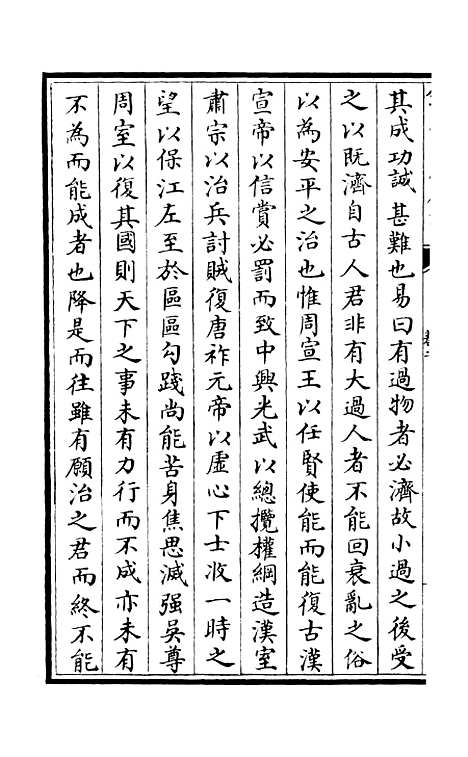 其成功誠甚難也易曰有過物者必濟故小過之後受
之以既濟自古人君非有大過人者不能回衰亂之俗
以為安平之治也惟周宣王以任賢使能而能復古漢
宣帝以信賞必罰而致中興光武以總攬權綱造漢室
肅宗以治兵討賊復唐祚元帝以虛心下士收一時之
望以保江左至於區區勾踐尚能苦身焦思滅强吳尊
周室以復其國則天下之事未有力行而不成亦未有
不為而能成者也降是而往雖有願治之君而終不能